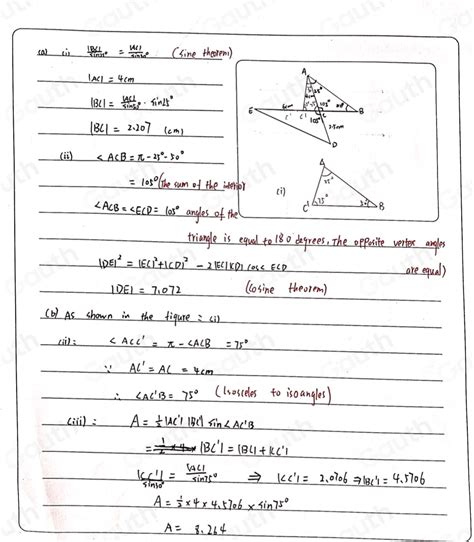 (a) (i) |BC|/sin25° = |AC|/sin50° (Sine theorem)
|AC| = 4cm
|BC| = |AC|/sin50° · sin25°
|BC| = 2.207 (cm)
(ii) < ACB = π - 25° - 50°
= 105° (the sum of the interior
< ACB = < ECD = 105° angles of the
triangle is equal to 180 degrees. The opposite vertex angles
are equal)
|DE|² = |EC|² + |CD|² - 2|EC||CD| cos< ECD
|DE| = 7.072 (cosine theorem)
(b) As shown in the figure: (i)
(ii): < ACC' = π - <ACB = 75°
∵ AC' = AC = 4cm
∴ <AC'B = 75° (Isosceles to isoangles)
(iii): A = ½ |AC'| |BC'| sin<AC'B
|BC'| = |BC| + |CC'|
|CC'|/sin30° = |AC|/sin75° ⇒ |CC'| = 2.0706 ⇒ |BC'| = 4.5706
A = ½ × 4 × 4.5706 × sin75°
A = 8.264
A
E
6cm
C'
C
B
105°
105°
2.5cm
D
(i)
A
C'
75°
B